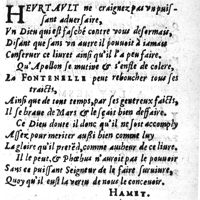 HEVRTAVLT ne craignez pas vn puis-
sant aduersaire,
Vn Dieu qui est fasché contre vous desormais,
Disant que sans vn autre il pouuoit à iamais
Conseruer ce liuret ainsi qu'il l'a peu faire.
Qu'Apollon se mutine & s'enste de colere
La FONTENELLE peut reboucher tous ses
traicts,
Ainsi que de tous temps, par ses genereux faicts,
Il se braue de Mars & le sçait bien deffaire.
Ce Dieu donte il donc qu'il ne soit accomply
Assez pour meriter aussi bien comme luy
La gloire qu'il pretẽd, comme autheur de ce liure.
Il le peut, & Phœbus n'auroit pas le pouuoir
Sans ce puissant Seigneur de le faire suruiure,
Quoy qu'il eust la vertu de nous le conceuoir.
HAMET.